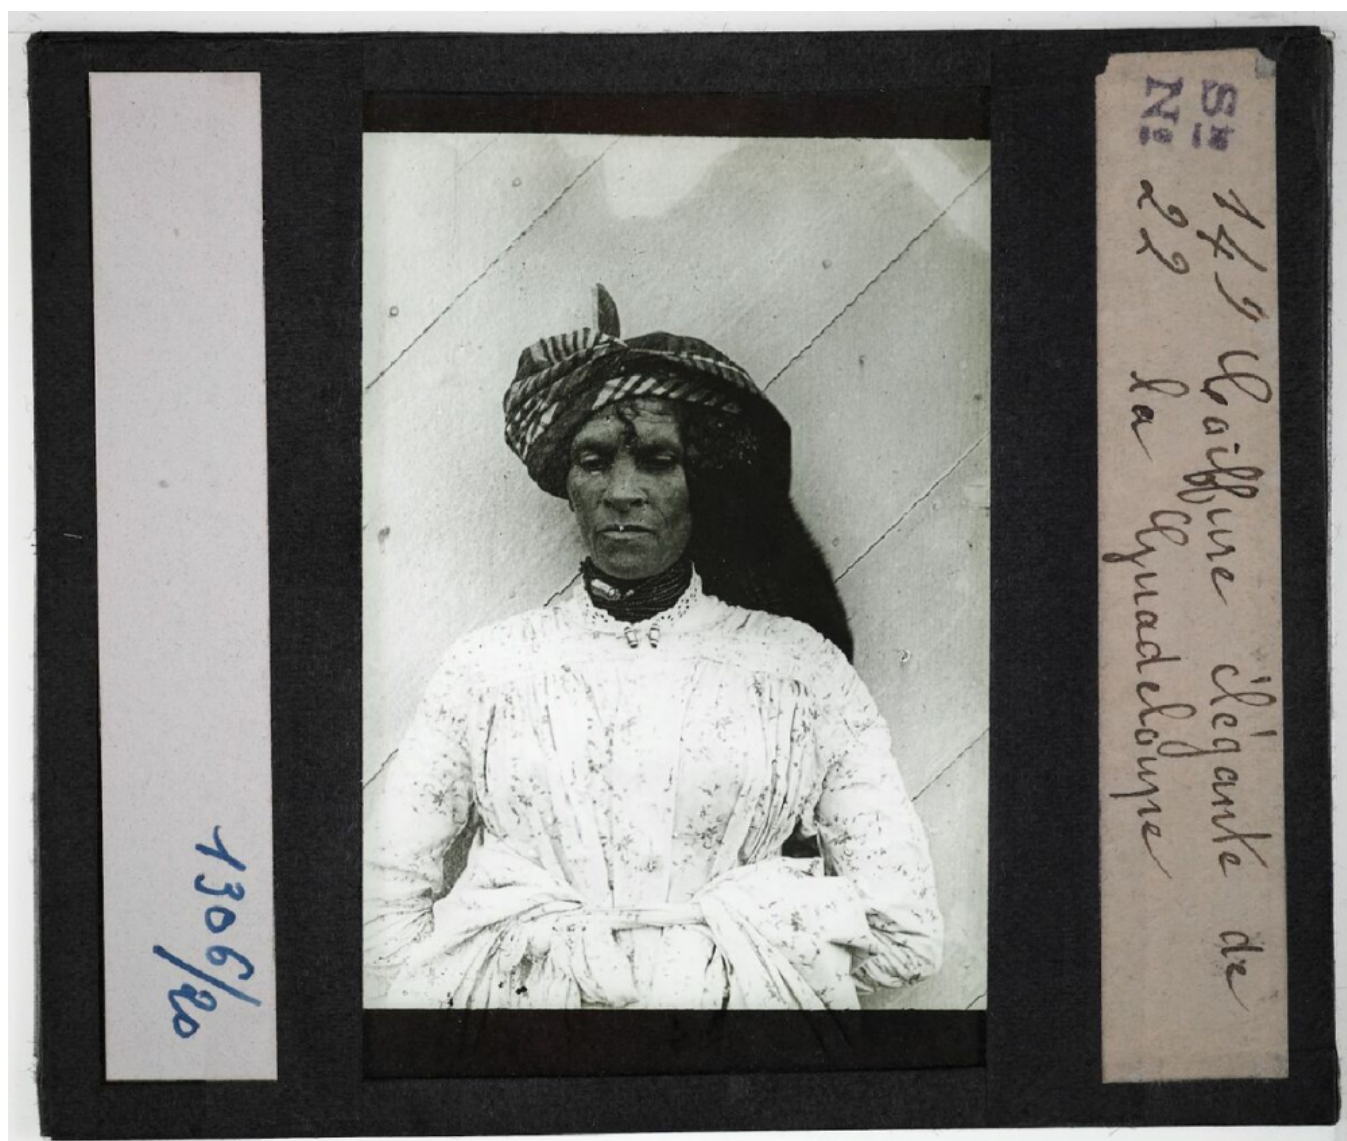 1306/20
Sie 149 Coiffure élégante de
No 22 la Guadeloupe